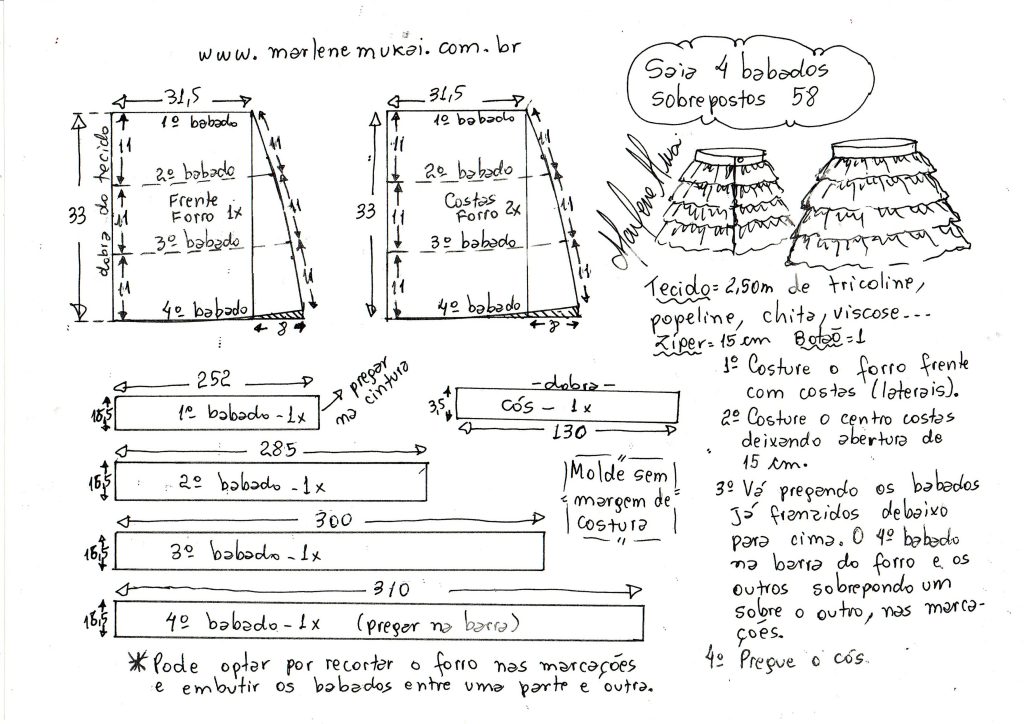 www.marlenemukai.com.br
Saia 4 babados
sobrepostos 58
31,5
1º babado
11
2º babado
dobra do tecido
33
Frente
Forro 1x
11
3º babado
11
4º babado
11
11
11
8
31,5
1º babado
11
2º babado
33
Costas
Forro 2x
11
3º babado
11
4º babado
11
11
11
8
Tecido = 2,50m de tricoline,
popeline, chita, viscose...
Zíper = 15 cm Botão = 1
1º Costure o forro frente
com costas (laterais).
2º Costure o centro costas
deixando abertura de
15 cm.
3º Vá pregando os babados
já franzidos debaixo
para cima. O 4º babado
na barra do forro e os
outros sobrepondo um
sobre o outro, nas marca-
ções.
4º Pregue o cós.
252
16,5
1º babado - 1x
pregar
na cintura
- dobra -
3,5
cós - 1x
130
285
16,5
2º babado - 1x
Molde sem
margem de
costura
300
16,5
3º babado - 1x
310
16,5
4º babado - 1x (pregar na barra)
* Pode optar por recortar o forro nas marcações
e embutir os babados entre uma parte e outra.